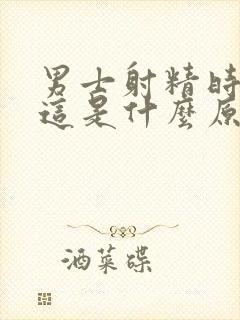 男士射精時
這是什麼原
酒菜碟